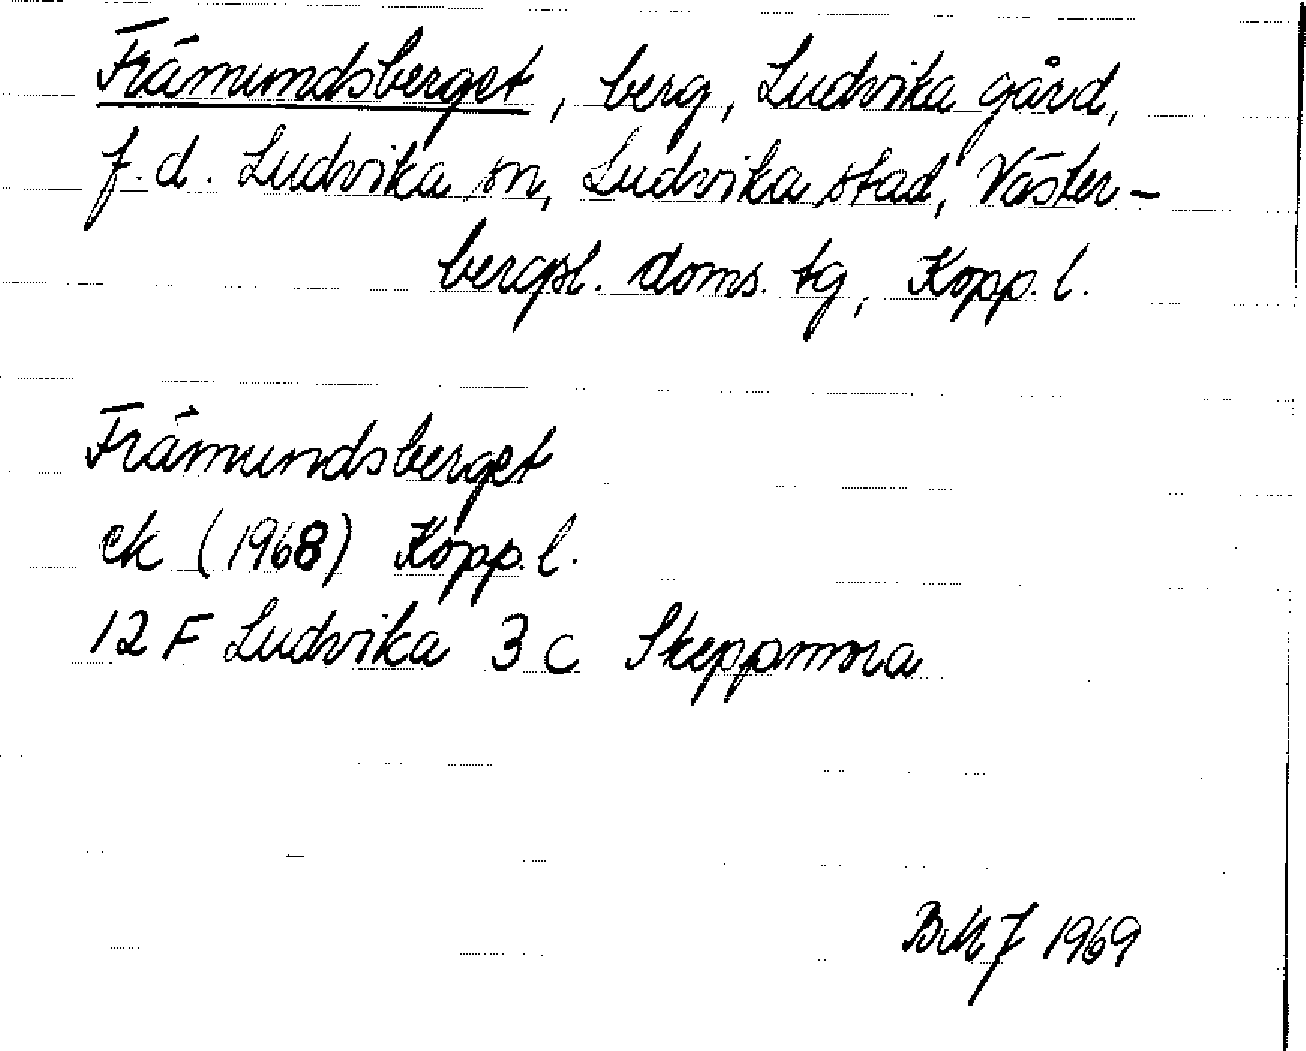 Främundsberget, berg, Ludvika gård,
f.d. Ludvika sn, Ludvika stad, Väster-
bergsl. doms. tg, Kopp. l.
Främundsberget
ek (1968) Kopp. l.
12 F Ludvika 3 c Skeppmora
BMJ 1969